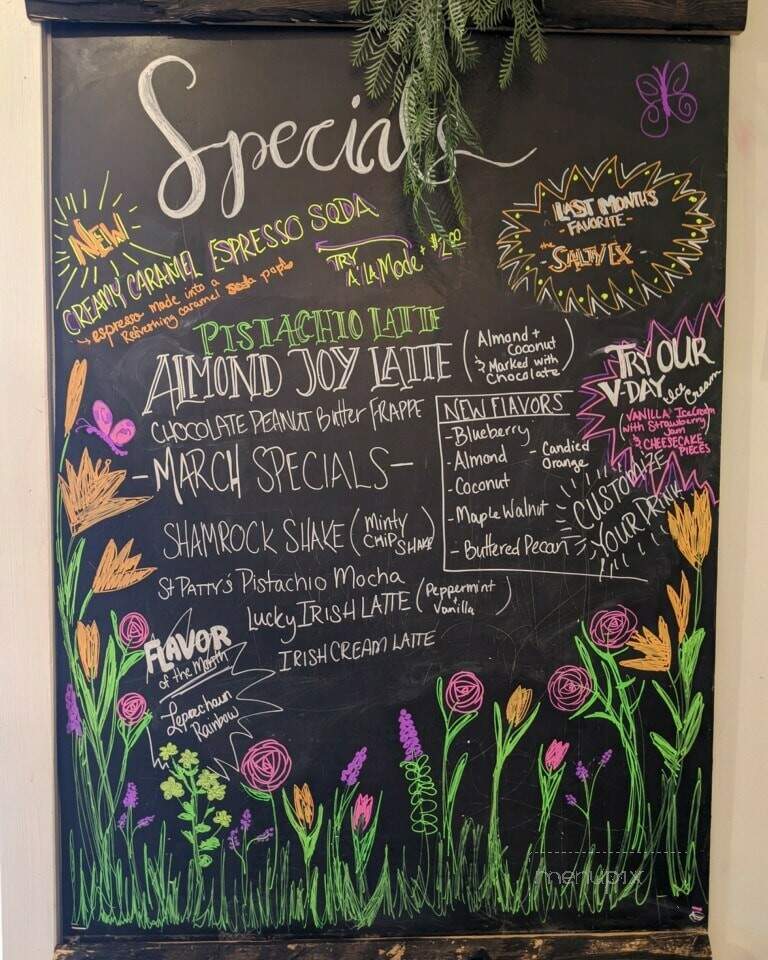 Specials
NEW
CREAMY CARAMEL ESPRESSO SODA
↳ espresso made into a
Refreshing caramel soda pop!
TRY
A'LA Mode + $2.00
LAST MONTH'S
- FAVORITE -
the
SALTY EX
PISTACHIO LATTE
ALMOND JOY LATTE
(Almond +
Coconut
& Marked with
Chocolate)
CHOCOLATE PEANUT Butter FRAPPE
TRY OUR
V-DAY Ice Cream
(VANILLA Ice Cream
with Strawberry
Jam
& CHEESECAKE
PIECES
NEW FLAVORS
- Blueberry
- Almond
- Candied
Orange
- Coconut
- Maple Walnut
- Buttered Pecan
CUSTOMIZE
YOUR DRINK
- MARCH SPECIALS -
SHAMROCK SHAKE (Minty
CHIP SHAKE)
St PATTY'S Pistachio Mocha
Lucky IRISH LATTE (Peppermint
+
Vanilla)
IRISH CREAM LATTE
FLAVOR
of the Month
Leprechaun
Rainbow
menupix